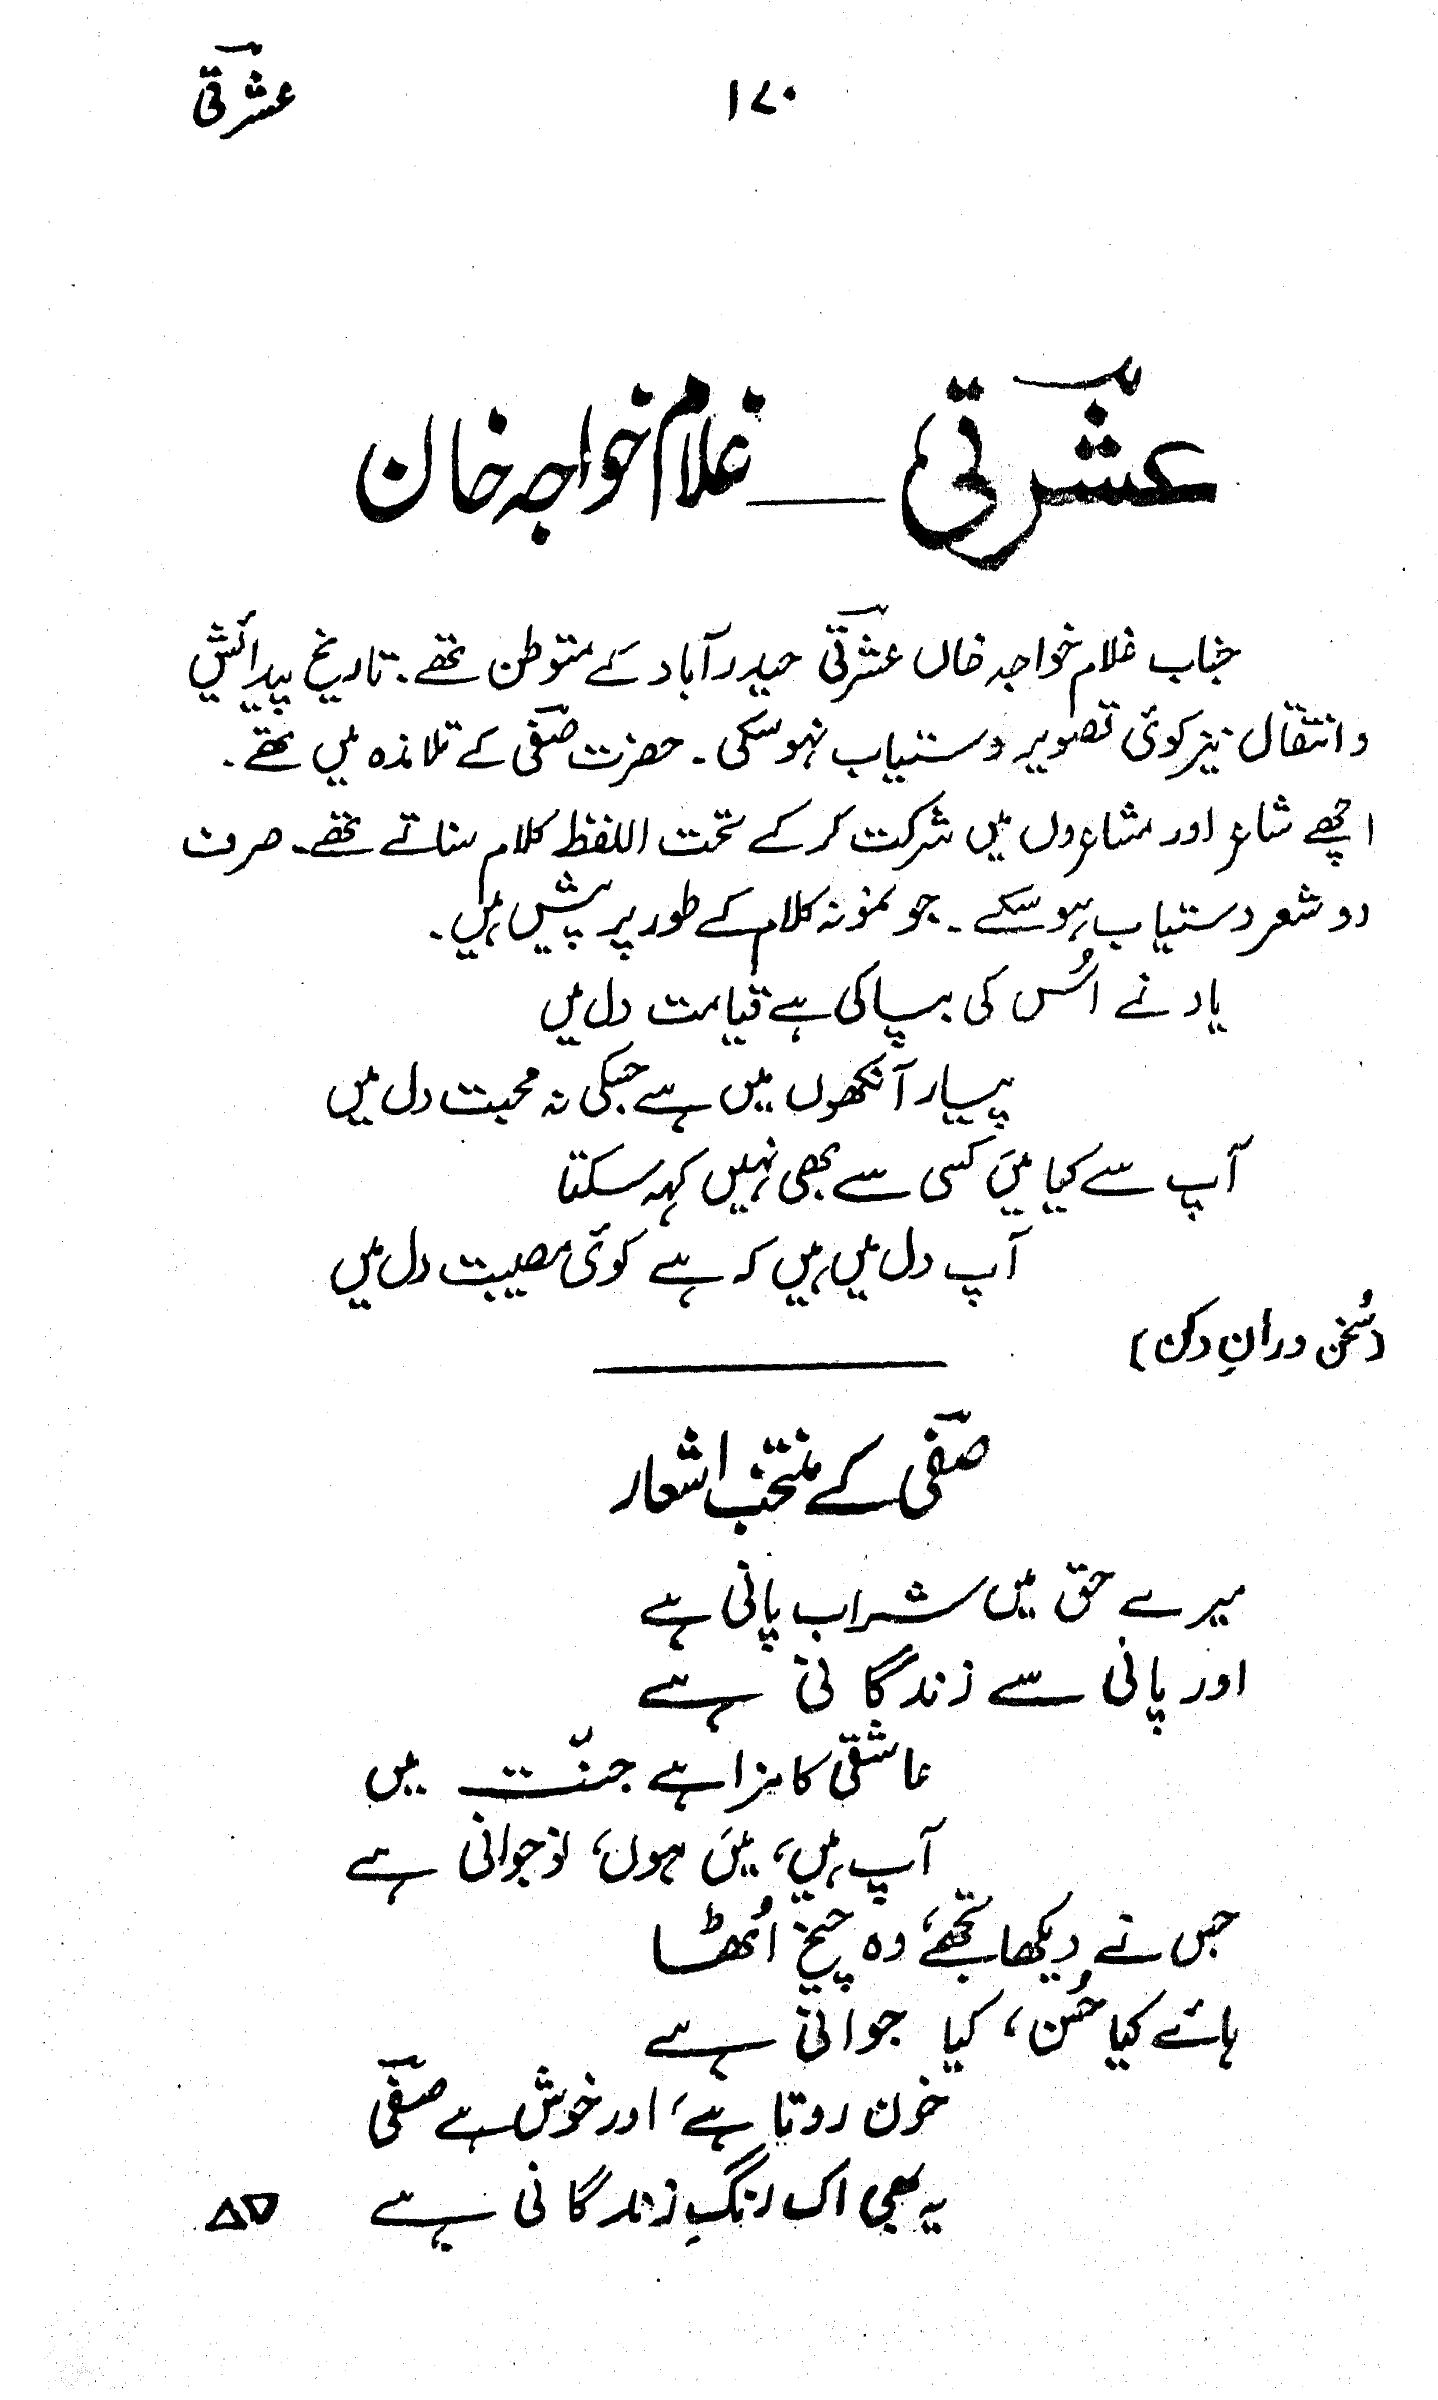 ۱۷۰
عشرتی
عشرتی ــــ غلام خواجہ خان
جناب غلام خواجہ خاں عشرتی حیدرآباد کے متوطن تھے۔ تاریخ پیدائش
و انتقال نیز کوئی تصویر دستیاب نہوسکی۔ حضرت صفی کے تلامذہ میں تھے۔
اچھے شاعر اور مشاعروں میں شرکت کرکے تحت اللفظ کلام سناتے تھے۔ صرف
دو شعر دستیاب ہوسکے۔ جو نمونہ کلام کے طور پر پیش ہیں۔
یاد نے اُس کی بپا کی ہے قیامت دل میں
پیار آنکھوں میں ہے جسکی نہ محبت دل میں
آپ سے کیا میَں کسی سے بھی نہیں کہہ سکتا
آپ دل میں ہیں کہ ہے کوئی مصیبت دل میں
(سُخن ورانِ دکن)
صفی کے منتخب اشعار
میرے حق میں شراب پانی ہے
اور پانی سے زندگانی ہے
عاشقی کا مزا ہے جنّت میں
آپ ہیں، میَں ہوں، نوجوانی ہے
جس نے دیکھا تجھے، وہ چیخ اُٹھا
ہائے کیا حُسن، کیا جوانی ہے
خون روتا ہے، اور خوش ہے صفی
یہ بھی اک رنگِ زندگانی ہے